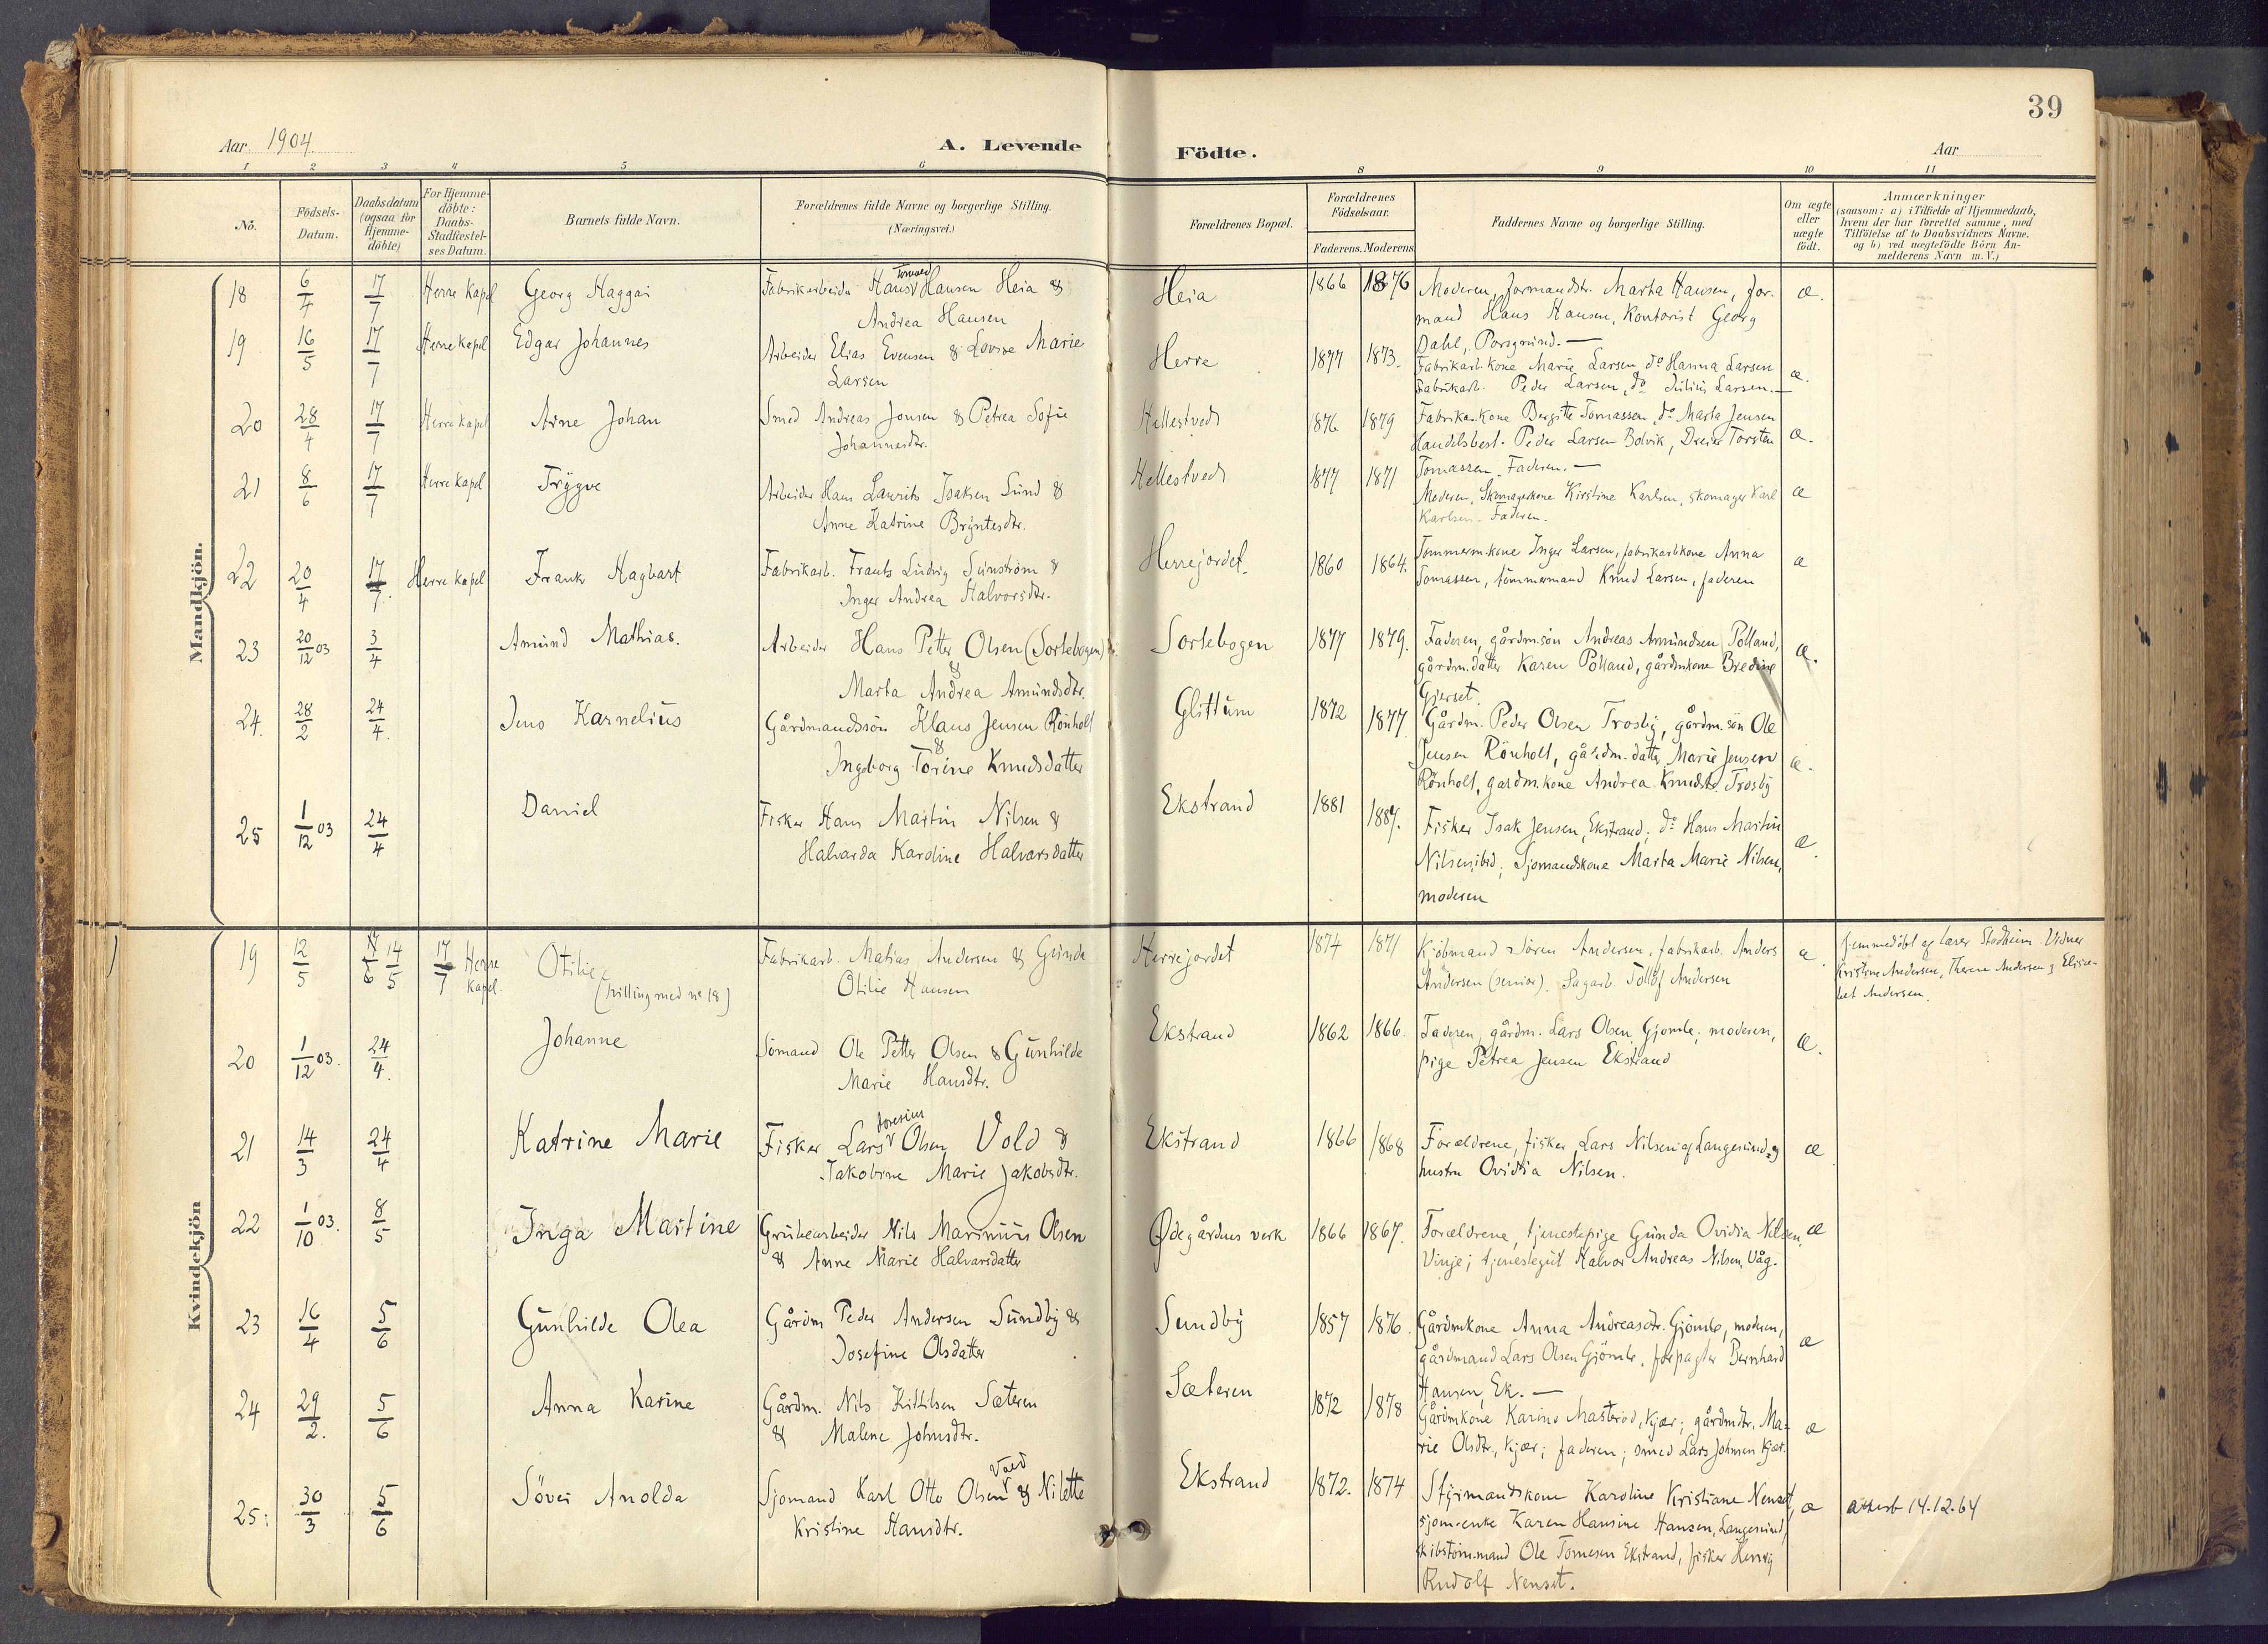 39
Aar 1904
A. Levende Födte.
Aar
1 2 3 4 5 6 8 9 10 11
No.
Födsels-Datum.
Daabsdatum (ogsaa for Hjemme-döbte)
For Hjemme-döbte: Daabs-Stadfæstel-ses Datum.
Barnets fulde Navn.
Forældrenes fulde Navne og borgerlige Stilling.
(Næringsvei.)
Forældrenes Bopæl.
Forældrenes Födselsaar.
Faderens. Moderens
Faddernes Navne og borgerlige Stilling.
Om ægte eller uægte födt.
Anmærkninger
(saasom: a) i Tilfælde af Hjemmedaab,
hvem der har forrettet samme, med
Tilföielse af to Daabsvidners Navne.
og b) ved uegtefödte Börn An-
melderens Navn m. V.)
Mandkjön.
18 6/4 17/7 Herre kapel Georg Haggai Fabrikarbeider Hans Hansen Heia &
Andrea Hansen
Heia 1866 1876 Moderen, formandsdtr. Marta Hansen, for-
mand Hans Hansen, Kontorist Georg
Dahl, Porsgrund. — æ.
19 16/5 17/7 Herre kapel Edgar Johannes Arbeider Elias Evensen & Lovise Marie
Larsen
Herre 1877 1873. Fabrikarb.kone Marie Larsen, do Hanna Larsen
Fabrikarb. Peder Larsen, do Julius Larsen. — æ.
20 28/4 17/7 Herre kapel Arne Johan Smed Andreas Jonsen & Petrea Sofie
Johannesdtr.
Hellestvedt 1876 1879 Fabrikar.kone Bergitte Tomassen, do Marta Jensen
Handelsbest. Peder Larsen Bolvik, Dreier Torsten
Tomassen. Faderen. — æ.
21 8/6 17/7 Herre kapel Trygve Arbeider Hans Laurits Isaksen Sund &
Anne Katrine Bryntesdtr.
Hellestvedt 1877 1871 Moderen, Skomagerkone Kirstine Karlsen, skomager Karl
Karlsen. Faderen. æ
22 20/4 17/7. Herre kapel Frank Hagbart Fabrikarb. Frants Ludvig Sunström &
Inger Andrea Halvorsdtr.
Herrejordet. 1860 1864. Tømmerm.kone Inger Larsen, fabrikarb.kone Anna
Tomassen, tømmermand Knud Larsen, faderen æ
23 20/12 03 3/4 Amund Mathias. Arbeider Hans Petter Olsen (Sortebogen)
&
Marta Andrea Amundsdtr.
Sortebogen 1877 1879. Faderen, gårdm.søn Andreas Amundsen Polland,
gårdm.datter Karen Polland, gårdmkone Bredine
Gjerset. æ.
24. 28/2 24/4. Jens Karnelius Gårdmandssøn Klaus Jensen Rönholt
&
Ingeborg Torine Knudsdatter
Glittum 1872 1877 Gårdm. Peder Olsen Trosby, gårdm.søn Ole
Jensen Rönholt, gårdm-datter Marie Jensen
Rönholt, gardm.kone Andrea Knudsd. Trosby æ.
25 1/12 03 24/4 Daniel Fisker Hans Martin Nilsen &
Halvarda Karoline Halvarsdatter
Ekstrand 1881 1884. Fisker Isak Jensen, Ekstrand; do Hans Martin
Nilsen, ibid; Sjømandskone Marta Marie Nilsen,
moderen æ.
Kvindekjön
19 12/5 14/5 17/7 Herre kapel. Otilie
(tvilling med no 18)
Fabrikarb. Matias Andersen & Gunda
Otilie Hansen
Herrejordet 1874 1871 Kjöbmand Sören Andersen, fabrikarb. Anders
Andersen (senior). Sagarb. Tollof Andersen æ.
Hjemmedöbt af lærer Stadheim. Vidner
Kristine Andersen, Therese Andersen & Elisa-
bet Andersen.
20 1/12 03. 24/4. Johanne Sömand Ole Petter Olsen & Gunhilde
Marie Hansdtr.
Ekstrand 1862 1866 Faderen, gårdm. Lars Olsen Gjømle; moderen,
pige Petrea Jensen Ekstrand æ.
21 14/3 24/4 Katrine Marie Fisker Lars Olsen Vold &
Jakobine Marie Jakobsdtr.
Ekstrand 1866 1868 Forældrene, fisker Lars Nilsen af Langesund og
hustru Ovidia Nilsen. æ
22 1/10 03. 8/5 Inga Martine Grubearbeider Nils Marinius Olsen
& Anne Marie Halvarsdatter
Ødegårdens verk 1866 1867. Forældrene, tjenestepige Gunda Ovidia Nilsen,
Vinje; tjenestegut Halvor Andreas Nilsen, Våg. æ
23 16/4 5/6 Gunhilde Olea Gårdm Peder Andersen Sundby &
Josefine Olsdatter
Sundby 1857 1876. Gårdmkone Anna Andreasdtr. Gjømle, moderen,
gårdmand Lars Olsen Gjømle, forpagter Bernhard
Hansen, Ek. — æ
24 29/2. 5/6 Anna Karine Gårdm. Nils Kittilsen Sæteren
& Malene Johnsdtr.
Sæteren 1872 1878 Gårdmkone Karine Masterød, Kjær; gårdmdtr. Ma-
rie Olsdtr., Kjær; faderen; smed Lars Johnsen Kjær. æ
25. 30/3 5/6 Sövei Anolda Sjomand Karl Otto Olsen Vold & Nilette
Kristine Hansdtr.
Ekstrand 1872. 1874 Styrmandskone Karoline Kristiane Nenset,
sjom-enke Karen Hansine Hansen, Langesund,
skibstøm.mand Ole Tomesen Ekstrand, fisker Henrig
Rudolf Nenset. æ
attest 14.12.64